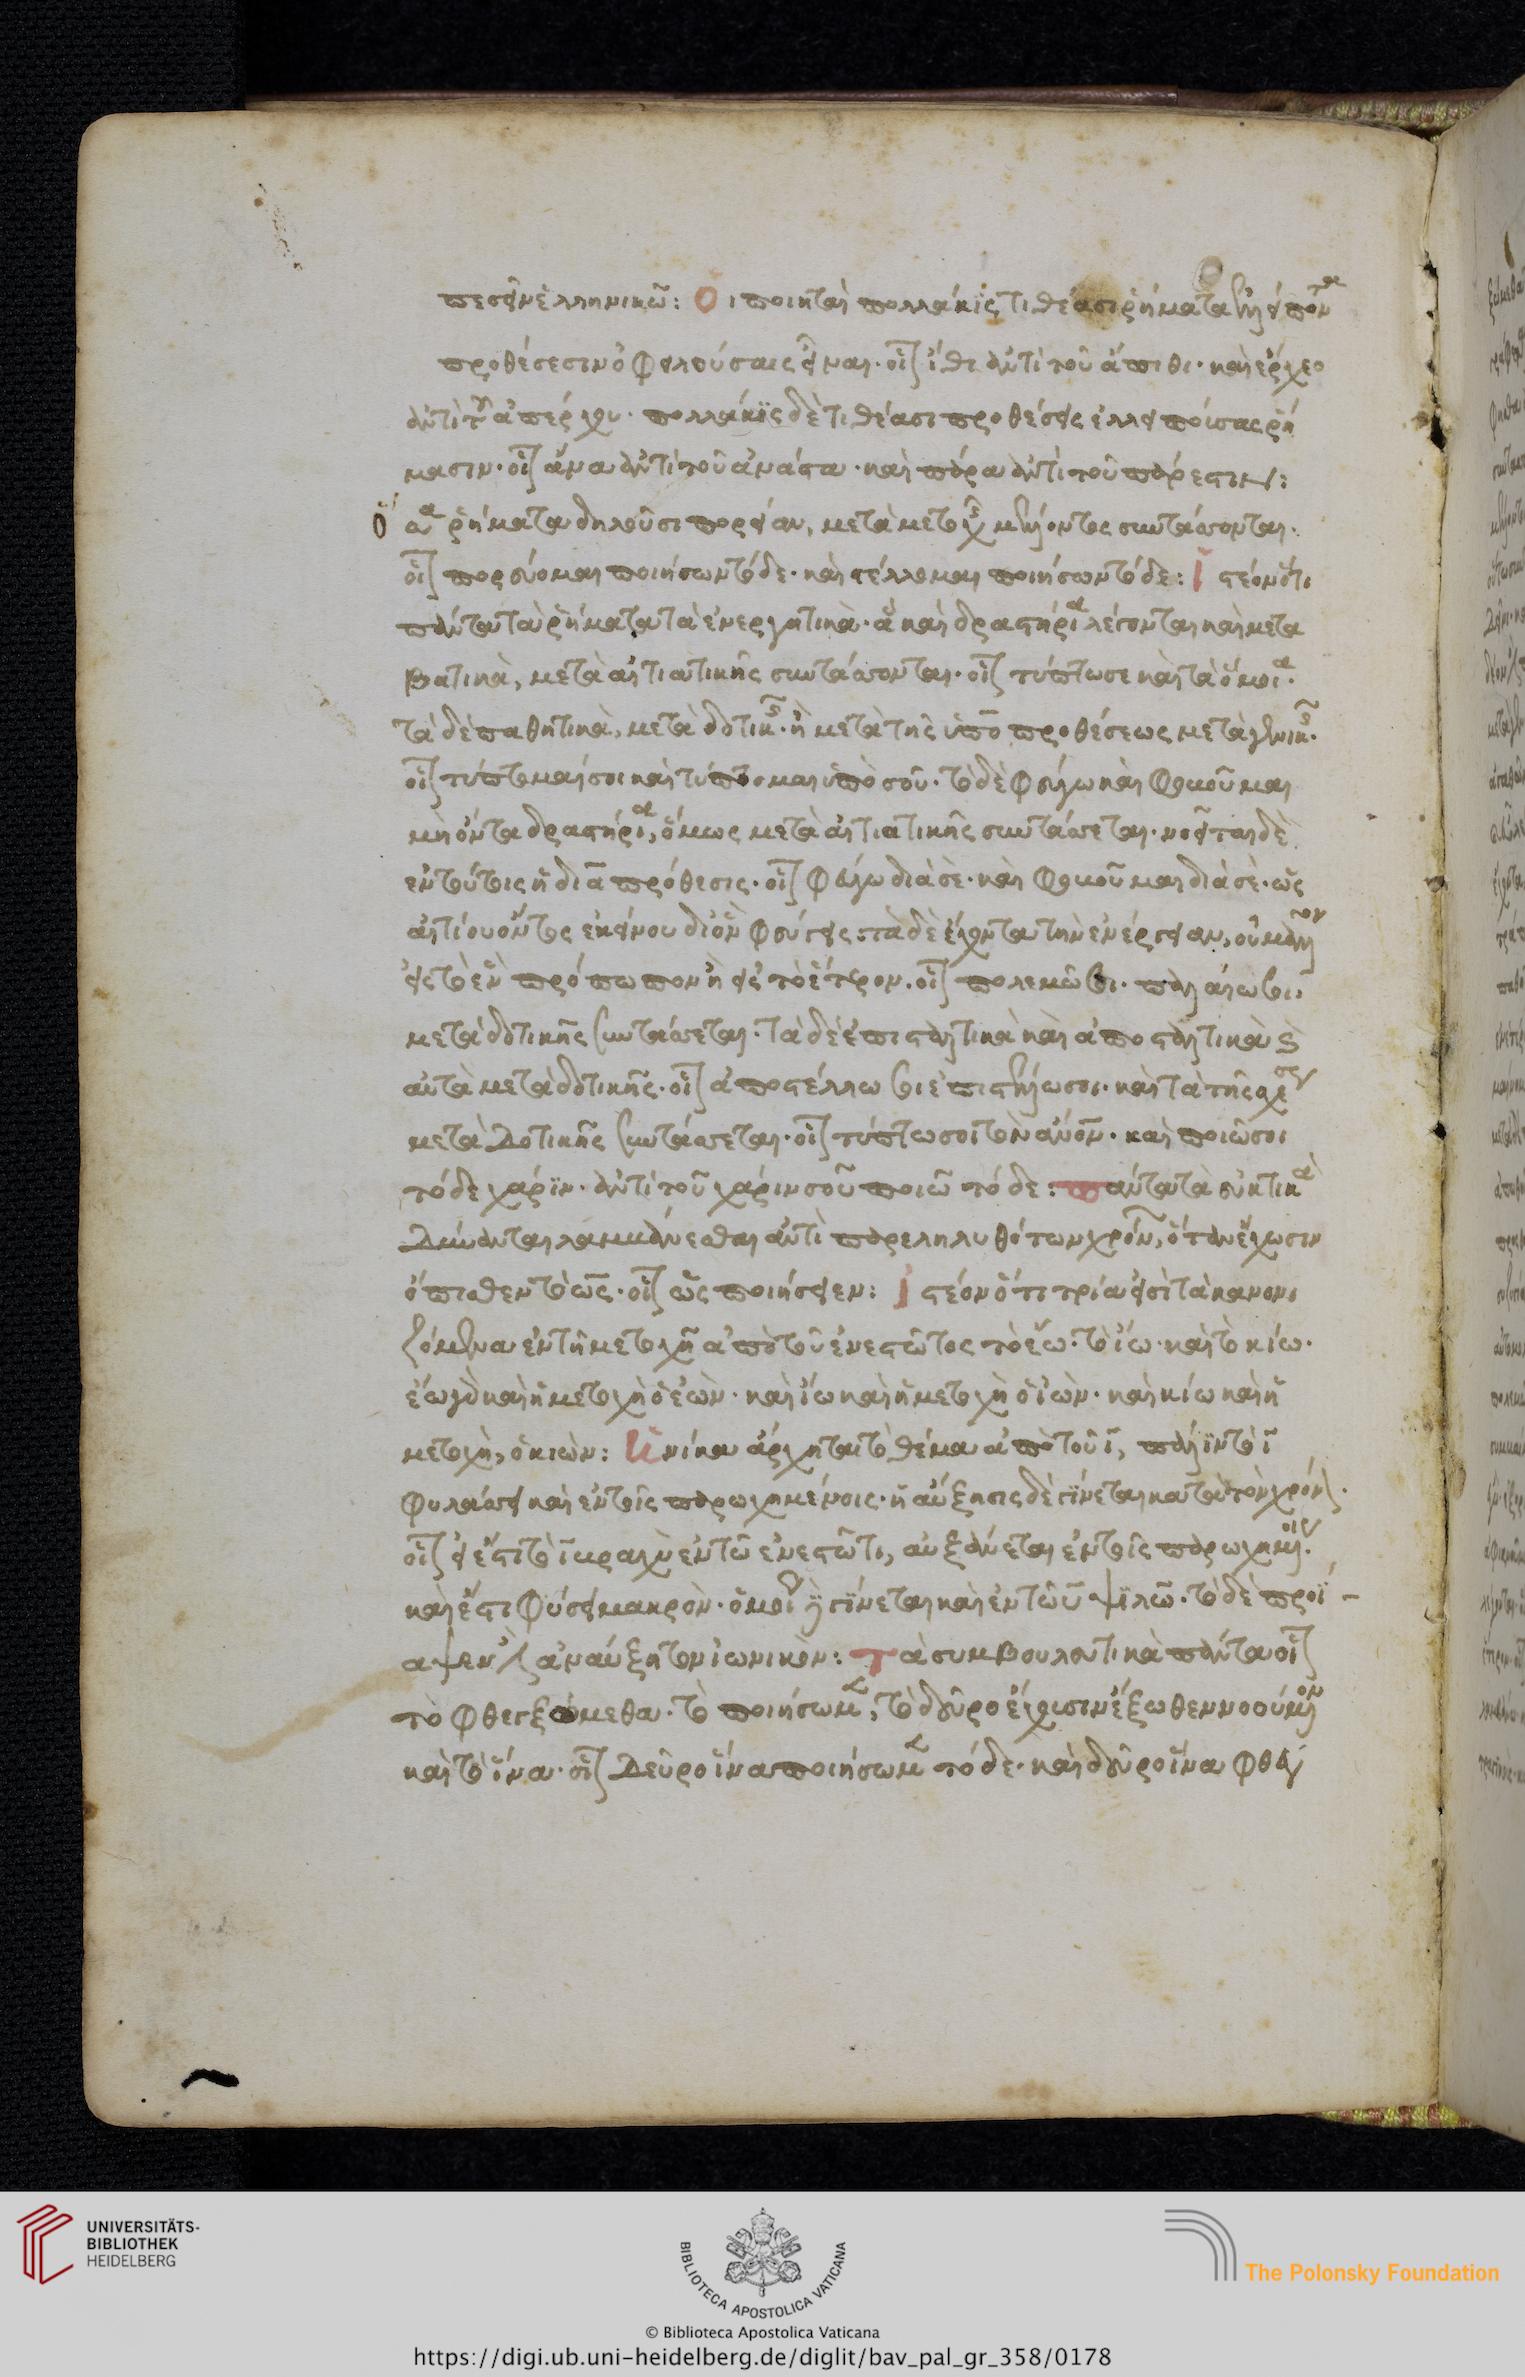 πεσεῖν ἑλληνικῶ: Οἱ ποιηταὶ πολλάκις τιθέασι ῥήματα
προθέσεσιν ὀφειλούσαις εἶναι· οἷ ἴθι ἀντὶ τοῦ ἄπιθι· καὶ ἔρχεο
ἀντὶ τοῦ ἀπέρχου· πολλάκις δὲ τιθέασι προθέσεις ἐλλειπούσας ῥή
μασιν· οἷ ἄνα ἀντὶ τοῦ ἀνάστα· καὶ πάρα ἀντὶ τοῦ πάρεστιν:
ὅσα ῥήματα δηλοῦσι πορείαν, μετὰ μετοχῆς μέλλοντος συντάσσονται·
οἷ πορεύομαι ποιήσων τόδε· καὶ στέλλομαι ποιήσων τόδε: Ἰστέον ὅτι
πάντα τὰ ῥήματα τὰ ἐνεργητικὰ· ἃ καὶ δραστήρια λέγονται καὶ μετα
βατικὰ, μετὰ αἰτιατικῆς συντάσσονται· οἷ τύπτω σε καὶ τὰ ὅμοια·
τὰ δὲ παθητικὰ, μετὰ δοτικῆς· ἢ μετὰ τῆς ὑπὸ προθέσεως μετὰ γενικῆς·
οἷ τύπτομαί σοι καὶ τύπτομαι ὑπὸ σοῦ· τὸ δὲ φεύγω καὶ
μὴ ὄντα δραστήρια, ὅμως μετὰ αἰτιατικῆς συντάσσεται· νοεῖται δὲ
ἐν τούτοις ἡ διὰ πρόθεσις· οἷ φεύγω διὰ σὲ· καὶ διὰ σὲ· ὡς
αἰτίου ὄντος ἐκείνου δι' ὃν φεύγεις· τὰ δὲ ἔχοντα τὴν ἐνέργειαν, οὐ μᾶλλον
εἰς τὸ ἓν πρόσωπον ἢ εἰς τὸ ἕτερον· οἷ πολεμῶ σοι· παλαίω σοι,
μετὰ δοτικῆς συντάσσεται· τὰ δὲ ἐπισταλτικὰ καὶ ἀποσταλτικὰ καὶ
αὐτὰ μετὰ δοτικῆς· οἷ ἀποστέλλω σοι ἐπιστέλλω σοι· καὶ τὰ τῆς
μετὰ δοτικῆς συντάσσεται· οἷ τύπτω σοι τὸν ἄνον· καὶ ποιῶ σοι
τόδε χάριν· ἀντὶ τοῦ χάριν σοῦ ποιῶ τόδε: πάντα τὰ εὐκτικὰ
δύνανται λαμβάνεσθαι ἀντὶ παρεληλυθότων χρόνων, ὅταν ἔχωσιν
ὄπισθεν τὸ ὡς· οἷ ὡς ποιήσειεν: Ἰστέον ὅτι τρία εἰσὶ τὰ κανονι
ζόμενα ἐν τῆ μετοχῆ ἀπὸ τοῦ ἐνεστῶτος τὸ ἔω· τὸ ἴω· καὶ τὸ κίω·
ἔω γὰρ καὶ ἡ μετοχὴ ὁ ἐὼν· καὶ ἴω καὶ ἡ μετοχὴ ὁ ἰὼν· καὶ κίω καὶ ἡ
μετοχὴ, ὁ κιὼν: Ἡνίκα ἄρχηται τὸ θέμα ἀπὸ τοῦ ῑ, πάλιν τὸ ῑ
φυλάσσει καὶ ἐν τοῖς παρωχημένοις· ἡ αὔξησις δὲ γίνεται κατὰ τὸν χρόνον·
οἷ εἰ ἔστι τὸ ῑ βραχὺ ἐν τῶ ἐνεστῶτι, αὐξάνεται ἐν τοῖς παρωχημένοις·
καὶ ἔστι φύσει μακρὸν· ὅμοιον γίνεται καὶ ἐν τῶ ῡ ψιλῶ· τὸ δὲ προΐ-
αψεν ἀναύξητον ἰωνικὸν: Τὰ συμβουλευτικὰ πάντα οἷ
τὸ φθεγξώμεθα· τὸ ποιήσωμεν, τὸ δεῦρο ἔχουσιν ἔξωθεν νοούμενον
καὶ τὸ ἵνα· οἷ δεῦρο ἵνα ποιήσωμεν τόδε· καὶ δεῦρο ἵνα φθεγ
UNIVERSITÄTS-
BIBLIOTHEK
HEIDELBERG
BIBLIOTECA APOSTOLICA VATICANA
The Polonsky Foundation
© Biblioteca Apostolica Vaticana
https://digi.ub.uni-heidelberg.de/diglit/bav_pal_gr_358/0178